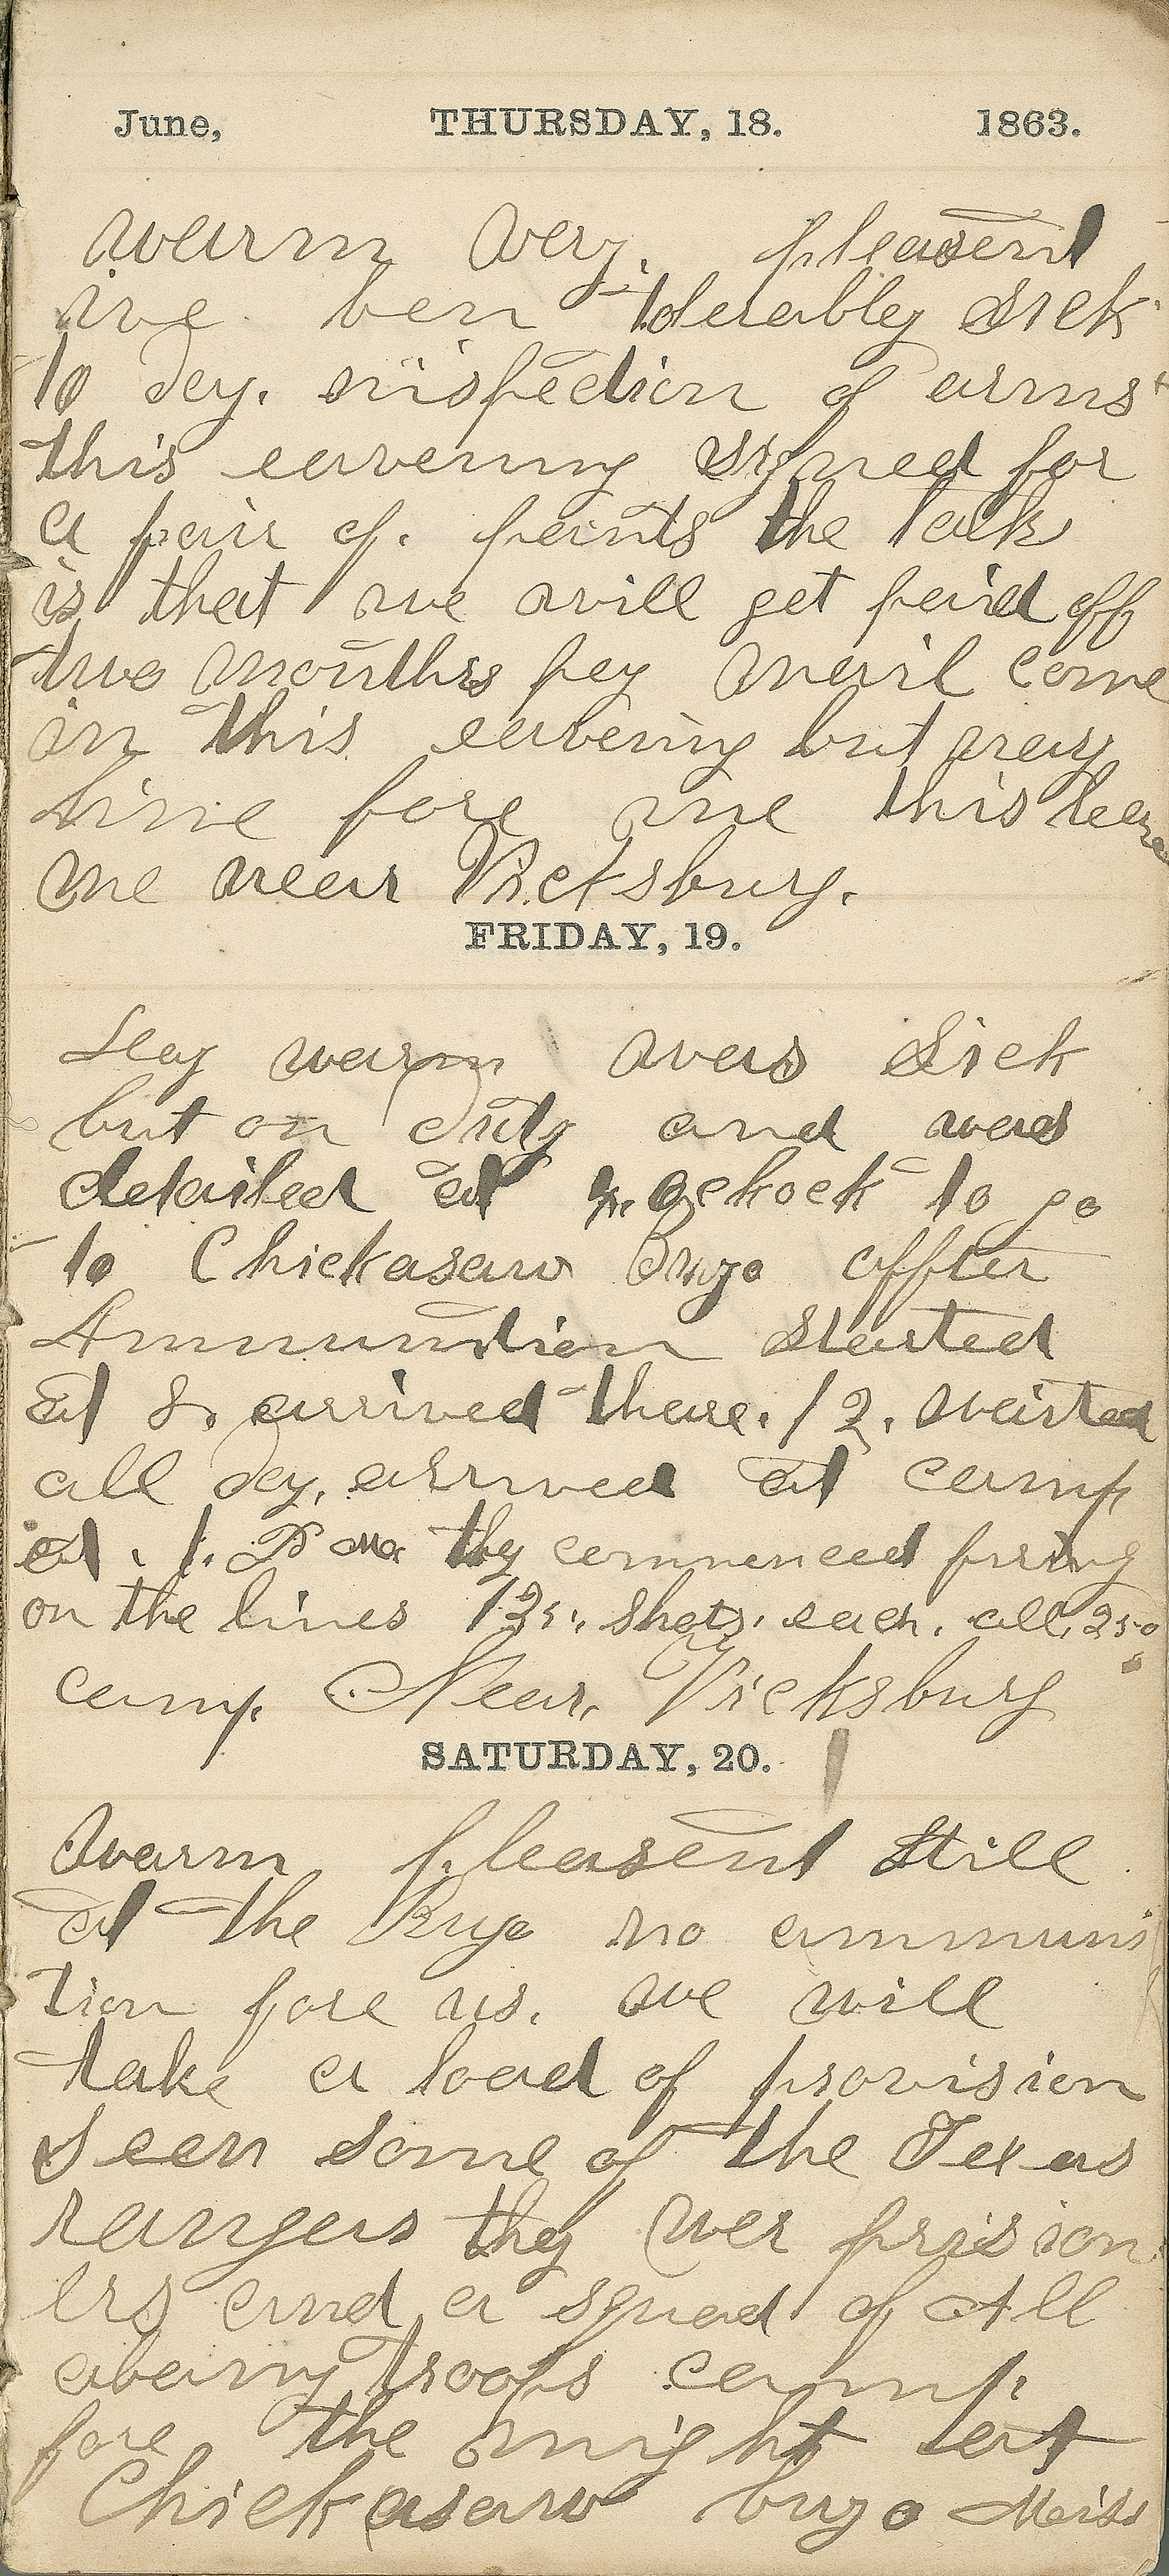 June, THURSDAY, 18. 1863.
warm very. pleasent
ive ben tolerabley sick
to day. inspection of arms
this eavening signed for
a pair of. pants the talk
is that we will get paid off
two months pay mail come
in this eavening but nary
line fore me this leave
me near Vicksburg.
FRIDAY, 19.
day warm was Sick
but on duty and was
detailed at 4. ockock to go
to Chickasaw Buyo affter
Ammuntion started
at 8. arrived thare. 12. waited
all day, arrived at camp
at. 1. P m they commenced firing
on the lines 125. shots. each. all. 250
camp. Near. Vicksburg
SATURDAY, 20.
Warm pleasent still
at the Buyo no ammuni
tion fore us. we will
take a load of provision
seen some of the Texas
rangers they wer prision
ers and a squad of All
abamy troops camp.
fore the night at
Chickasaw buyo Miss